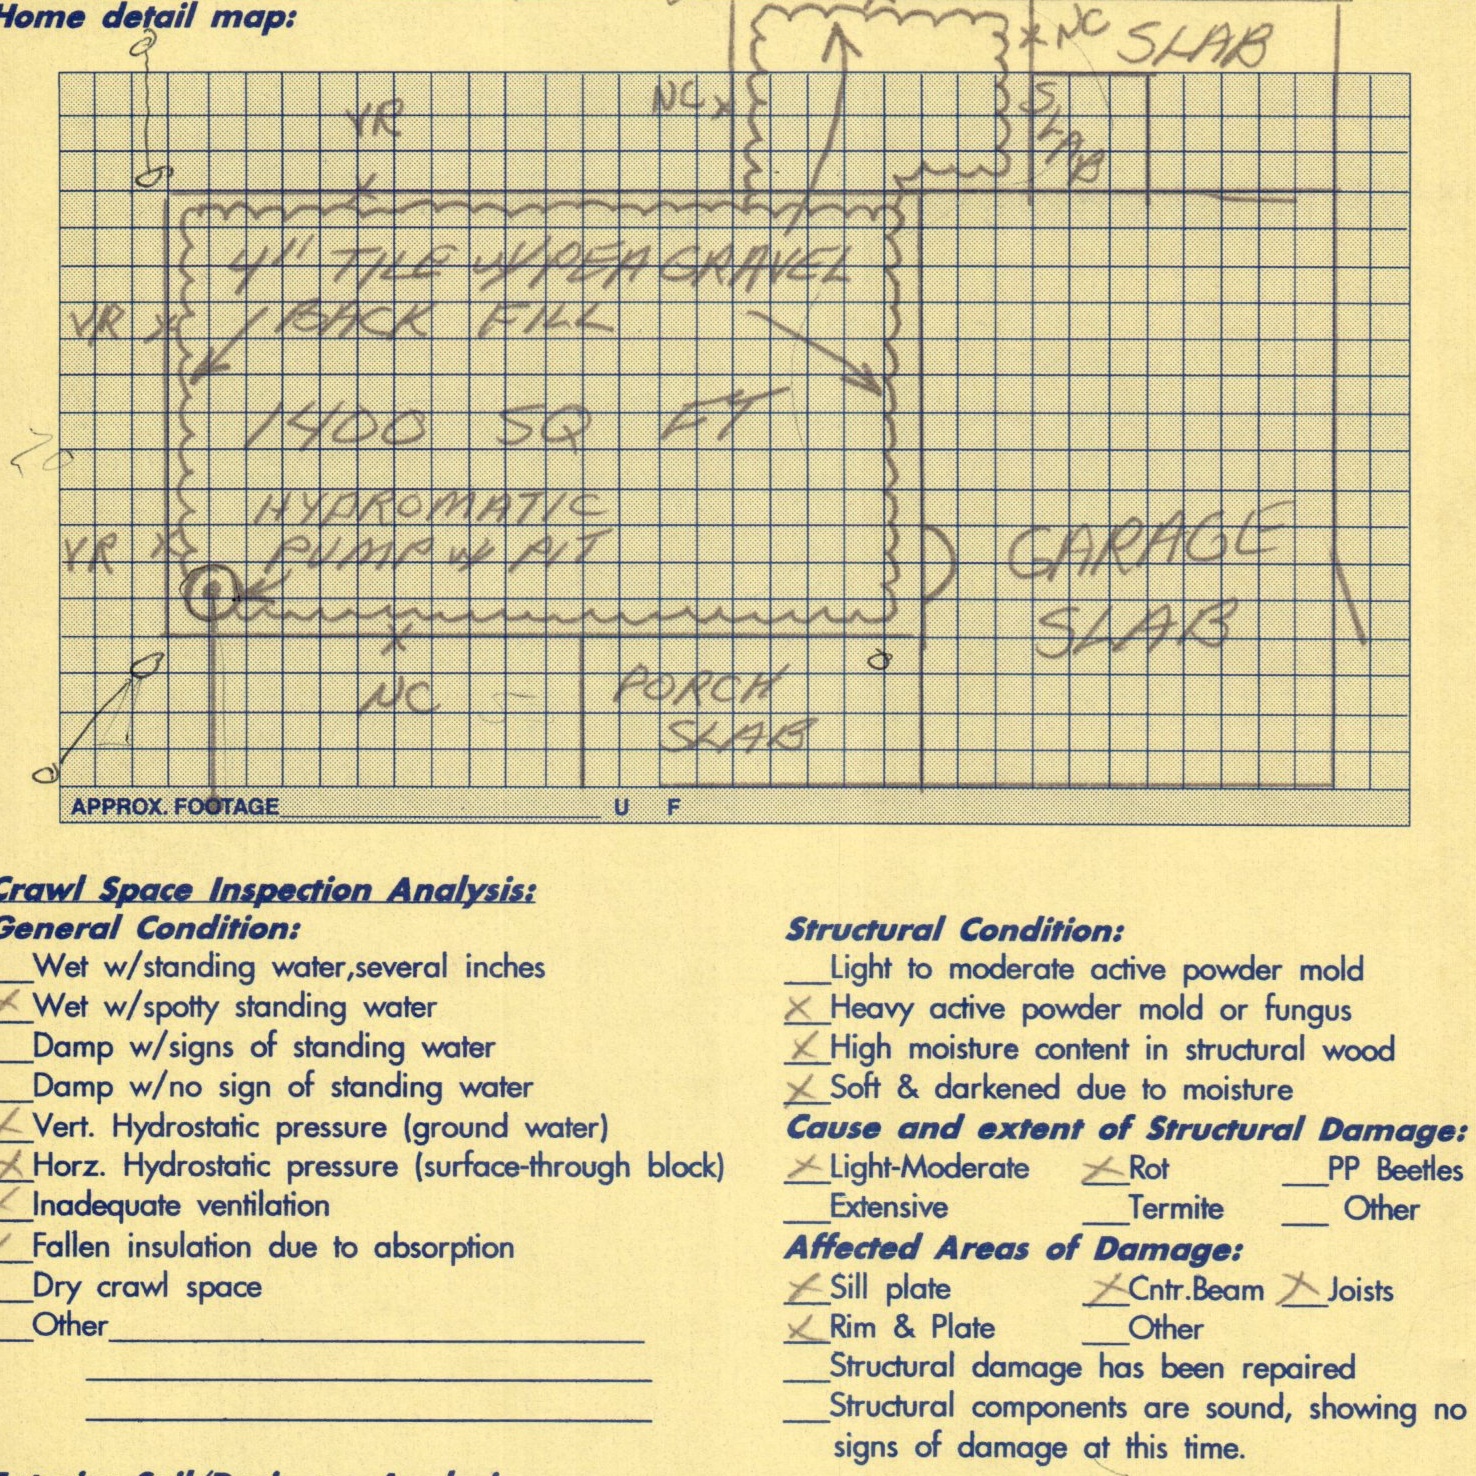 Home detail map:
NC SLAB
NC
VR
SLAB
4" TILE W/PEA GRAVEL
BACK FILL
VR
1400 SQ FT
20
HYDROMATIC
PUMP W PIT
VR
GARAGE
SLAB
NC
PORCH
SLAB
APPROX. FOOTAGE U F
Crawl Space Inspection Analysis:
General Condition:
__Wet w/standing water,several inches
X Wet w/spotty standing water
__Damp w/signs of standing water
__Damp w/no sign of standing water
X Vert. Hydrostatic pressure (ground water)
X Horz. Hydrostatic pressure (surface-through block)
X Inadequate ventilation
X Fallen insulation due to absorption
__Dry crawl space
__Other
Structural Condition:
__Light to moderate active powder mold
X Heavy active powder mold or fungus
X High moisture content in structural wood
X Soft & darkened due to moisture
Cause and extent of Structural Damage:
X Light-Moderate X Rot __PP Beetles
__Extensive __Termite __ Other
Affected Areas of Damage:
X Sill plate X Cntr.Beam X Joists
X Rim & Plate __Other
__Structural damage has been repaired
__Structural components are sound, showing no
signs of damage at this time.